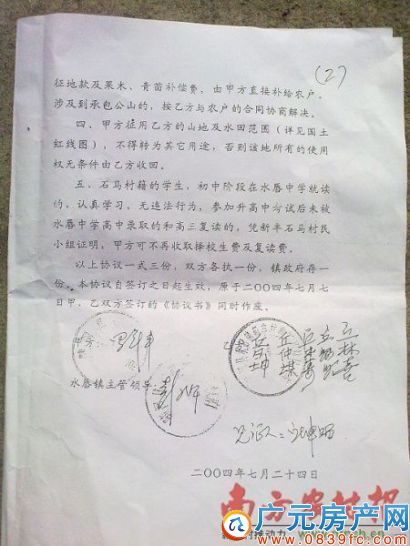 (2)
征地款及果木、青苗补偿费，由甲方直接补给农户。
涉及到承包公山的，按乙方与农户的合同协商解决。
四、甲方征用乙方的山地及水田范围（详见国土
红线图），不得转为其它用途，否则该地所有的使用
权无条件由乙方收回。
五、石马村籍的学生，初中阶段在水唇中学就读
的，认真学习，无违法行为，参加升高中考试后未被
水唇中学高中录取的和高三复读的，凭新丰石马村民
小组证明，甲方可不再收取择校生费及复读费。
以上协议一式三份，双方各执一份，镇政府存一
份。本协议自签订之日起生效，原于二00四年七月七
日甲、乙双方签订的《协议书》同时作废。
水唇镇主管领导：
见证人：
二00四年七月二十四日
南方农村报
广元房产网
www.0839fc.com